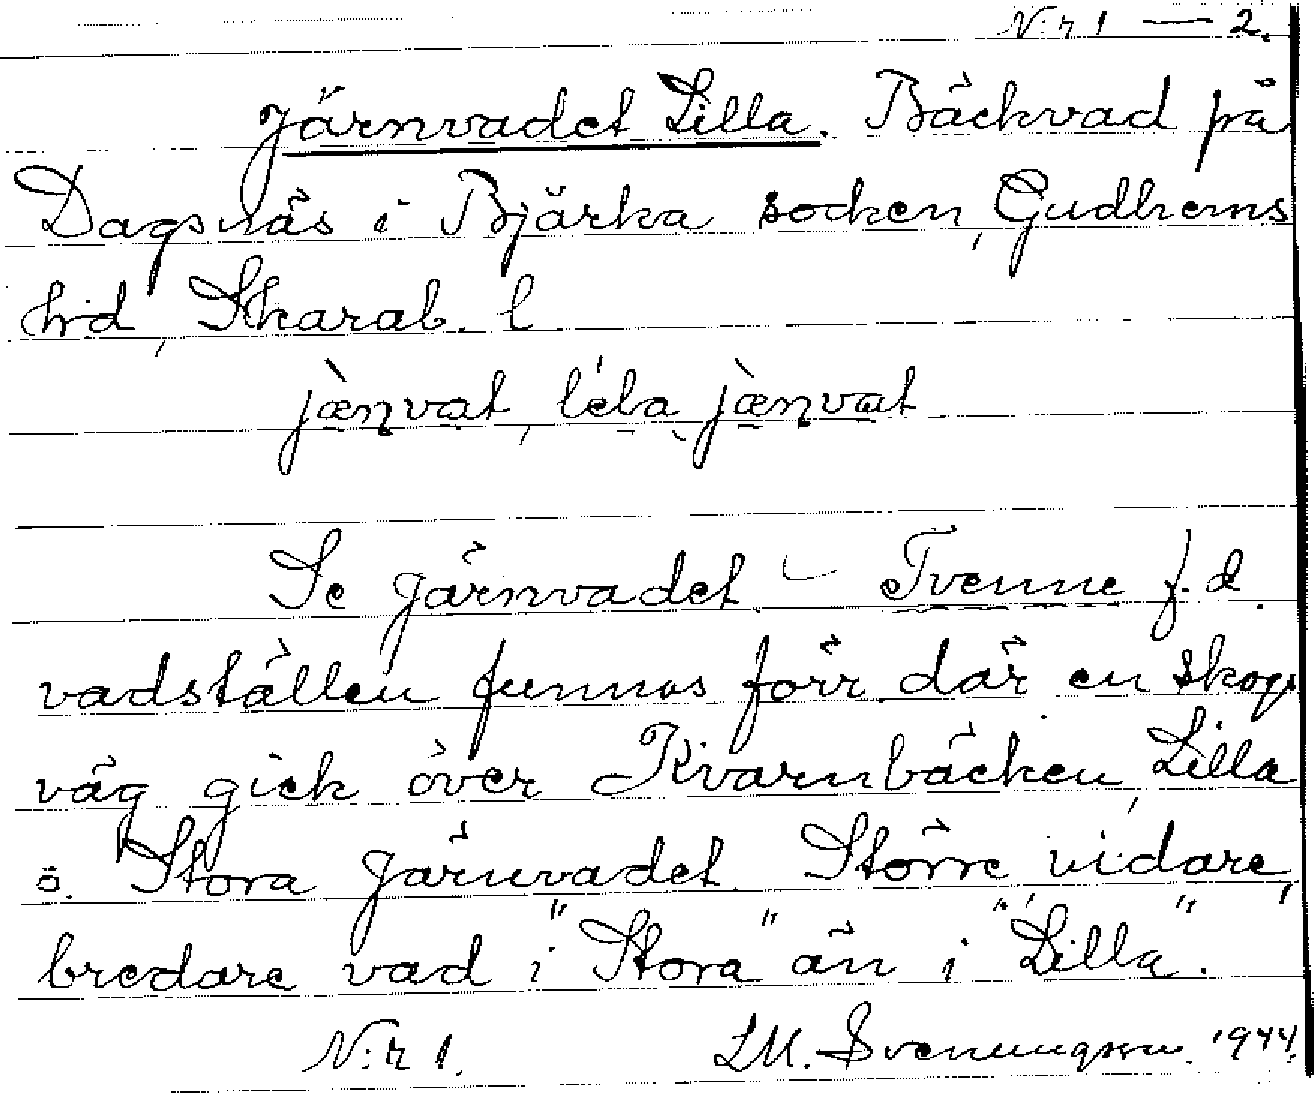 N:r 1 — 2.
Järnvadet Lilla. Bäckvad på
Dagsnäs i Bjärka socken, Gudhems
hd, Skarab. l
jæ̀nvat, léla jæ̀nvat
Se Järnvadet – Tvenne f.d.
vadställen funnos förr där en skogs
väg gick över Kvarnbäcken, Lilla
o. Stora Järnvadet. Större, vidare,
bredare vad i "Stora" än i "Lilla".
N:r 1. LM. Svenungsson. 1944.